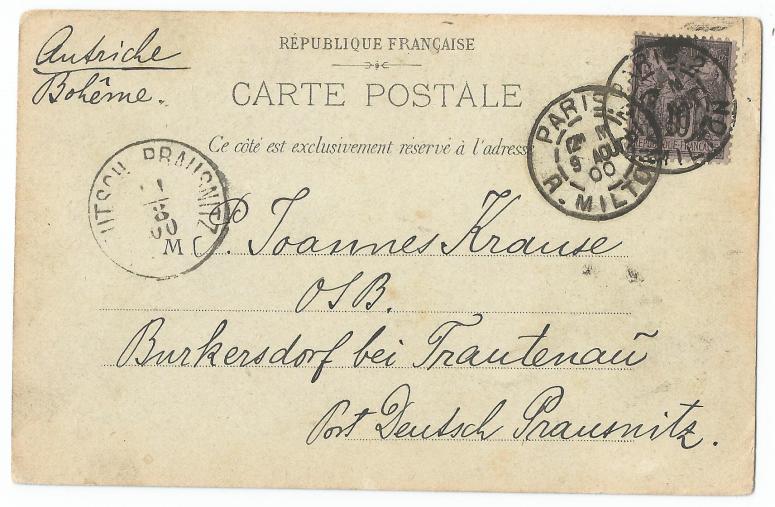 Autriche
Bohême.
RÉPUBLIQUE FRANÇAISE
CARTE POSTALE
Ce côté est exclusivement réservé à l'adresse
PARIS
9 AOUT
00
R. MILTON
UTSCH PRAUSNITZ
11
8
00
M P. Joannes Krause
OSB.
Burkersdorf bei Trautenaū
Post Deutsch Prausnitz.